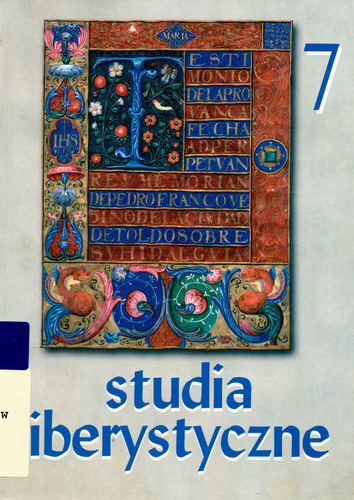 MARIA
7
ESTI
MONIO
DELAPRO
VANCA
FECHA
ADPER
PETVAN
IHS
REI MEMORIAN
DEPEDROFRANCOVE
ZINODELACIVDAD
DETOLDOSOBRE
SVHIDALGVIA
studia
iberystyczne
W